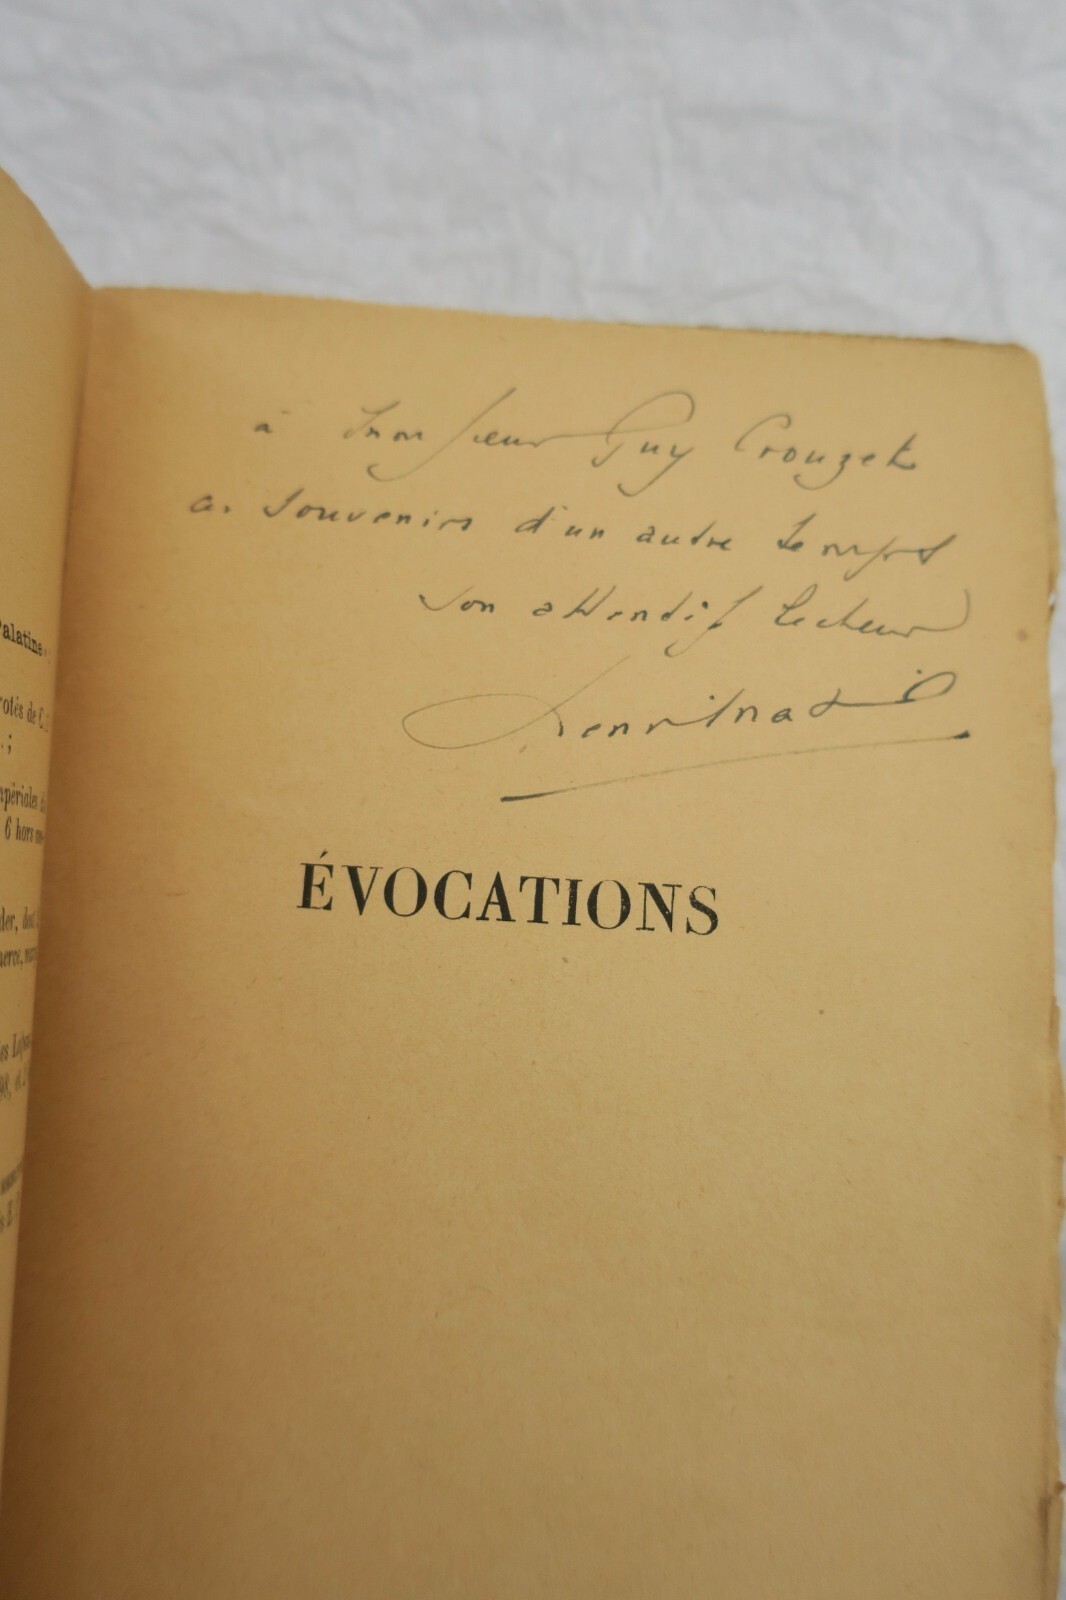 Palatine
rotés de C.
. ;
mpériales
6 hors
der, dont
nerce,
es
98, et
à Monsieur Guy Crouzet
ces souvenirs d'un autre temps
son attentif lecteur
Henri
ÉVOCATIONS